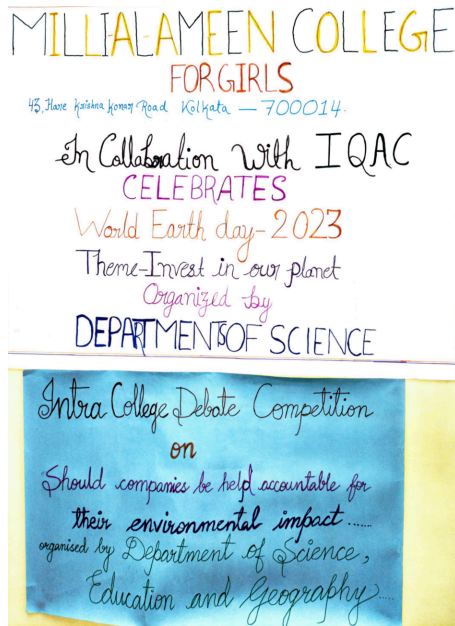 MILLIAL-AMEEN COLLEGE
FOR GIRLS
43, Hare Krishna Konar Road Kolkata — 700014.
In Collaboration With IQAC
CELEBRATES
World Earth day-2023
Theme-Invest in our planet
Organized by
DEPARTMENTS OF SCIENCE
Intra College Debate Competition
on
Should companies be held accountable for
their environmental impact......
organised by Department of Science,
Education and Geography.....